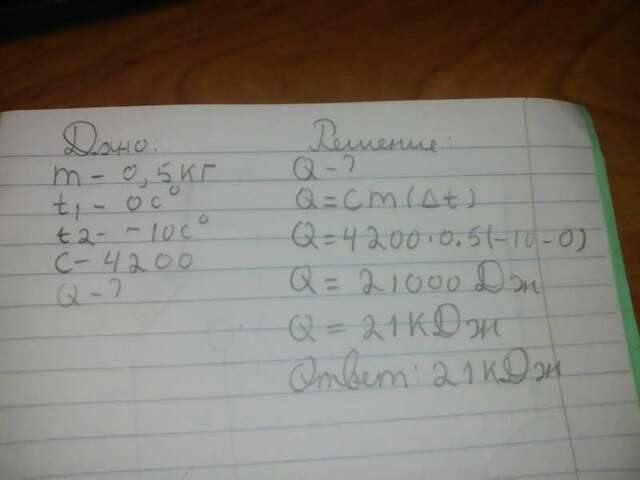 Дано:
m - 0,5 кг
t1 - 0c°
t2 - -10c°
C - 4200
Q - ?
Решение:
Q - ?
Q = cm(Δt)
Q = 4200·0.5(-10-0)
Q = 21000 Дж
Q = 21 КДж
Ответ: 21 КДж